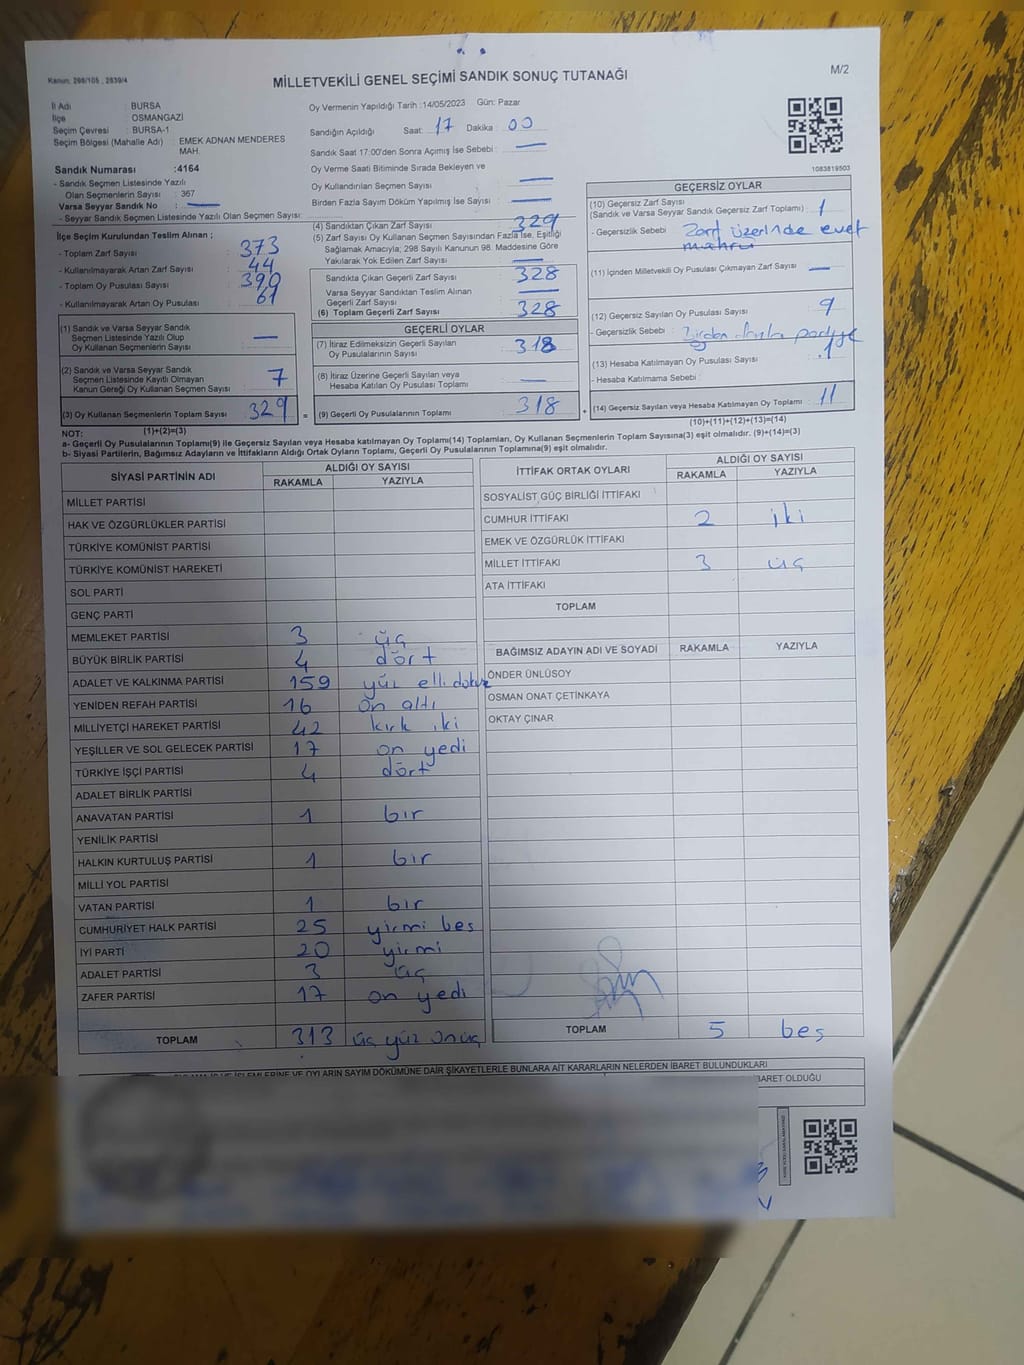 Kanun: 298/105 , 2839/4
MİLLETVEKİLİ GENEL SEÇİMİ SANDIK SONUÇ TUTANAĞI
M/2
İl Adı : BURSA
İlçe : OSMANGAZİ
Seçim Çevresi : BURSA-1
Seçim Bölgesi (Mahalle Adı) : EMEK ADNAN MENDERES
MAH.
Sandık Numarası :4164
- Sandık Seçmen Listesinde Yazılı
Olan Seçmenlerin Sayısı : 367
Varsa Seyyar Sandık No :
- Seyyar Sandık Seçmen Listesinde Yazılı Olan Seçmen Sayısı:
Oy Vermenin Yapıldığı Tarih :14/05/2023 Gün: Pazar
Sandığın Açıldığı Saat: 17 Dakika : 00
Sandık Saat 17:00'den Sonra Açımış İse Sebebi :
Oy Verme Saati Bitiminde Sırada Bekleyen ve
Oy Kullandırılan Seçmen Sayısı :
Birden Fazla Sayım Döküm Yapılmış İse Sayısı :
1083819503
İlçe Seçim Kurulundan Teslim Alınan ;
- Toplam Zarf Sayısı : 373
- Kullanılmayarak Artan Zarf Sayısı : 44
- Toplam Oy Pusulası Sayısı : 390
- Kullanılmayarak Artan Oy Pusulası : 61
(1) Sandık ve Varsa Seyyar Sandık
Seçmen Listesinde Yazılı Olup
Oy Kullanan Seçmenlerin Sayısı :
(2) Sandık ve Varsa Seyyar Sandık
Seçmen Listesinde Kayıtlı Olmayan
Kanun Gereği Oy Kullanan Seçmen Sayısı : 7
(3) Oy Kullanan Seçmenlerin Toplam Sayısı : 329
(1)+(2)=(3)
(4) Sandıktan Çıkan Zarf Sayısı : 329
(5) Zarf Sayısı Oy Kullanan Seçmen Sayısından Fazla İse, Eşitliği
Sağlamak Amacıyla; 298 Sayılı Kanunun 98. Maddesine Göre
Yakılarak Yok Edilen Zarf Sayısı :
Sandıkta Çıkan Geçerli Zarf Sayısı : 328
Varsa Seyyar Sandıktan Teslim Alınan
Geçerli Zarf Sayısı :
(6) Toplam Geçerli Zarf Sayısı : 328
GEÇERLİ OYLAR
(7) İtiraz Edilmeksizin Geçerli Sayılan
Oy Pusulalarının Sayısı : 318
(8) İtiraz Üzerine Geçerli Sayılan veya
Hesaba Katılan Oy Pusulası Toplamı :
= (9) Geçerli Oy Pusulalarının Toplamı : 318 +
GEÇERSİZ OYLAR
(10) Geçersiz Zarf Sayısı
(Sandık ve Varsa Seyyar Sandık Geçersiz Zarf Toplamı) : 1
- Geçersizlik Sebebi : Zarf üzerinde evet
mührü
(11) İçinden Milletvekili Oy Pusulası Çıkmayan Zarf Sayısı :
(12) Geçersiz Sayılan Oy Pusulası Sayısı : 9
- Geçersizlik Sebebi : Birden fazla partiye
(13) Hesaba Katılmayan Oy Pusulası Sayısı : 1
- Hesaba Katılmama Sebebi :
(14) Geçersiz Sayılan veya Hesaba Katılmayan Oy Toplamı : 11
(10)+(11)+(12)+(13)=(14)
NOT:
a- Geçerli Oy Pusulalarının Toplamı(9) ile Geçersiz Sayılan veya Hesaba katılmayan Oy Toplamı(14) Toplamları, Oy Kullanan Seçmenlerin Toplam Sayısına(3) eşit olmalıdır. (9)+(14)=(3)
b- Siyasi Partilerin, Bağımsız Adayların ve İttifakların Aldığı Ortak Oyların Toplamı, Geçerli Oy Pusulalarının Toplamına(9) eşit olmalıdır.
SİYASİ PARTİNİN ADI ALDIĞI OY SAYISI
RAKAMLA YAZIYLA
MİLLET PARTİSİ
HAK VE ÖZGÜRLÜKLER PARTİSİ
TÜRKİYE KOMÜNİST PARTİSİ
TÜRKİYE KOMÜNİST HAREKETİ
SOL PARTİ
GENÇ PARTİ
MEMLEKET PARTİSİ 3 üç
BÜYÜK BİRLİK PARTİSİ 4 dört
ADALET VE KALKINMA PARTİSİ 159 yüz elli dokuz
YENİDEN REFAH PARTİSİ 16 on altı
MİLLİYETÇİ HAREKET PARTİSİ 42 kırk iki
YEŞİLLER VE SOL GELECEK PARTİSİ 17 on yedi
TÜRKİYE İŞÇİ PARTİSİ 4 dört
ADALET BİRLİK PARTİSİ
ANAVATAN PARTİSİ 1 bir
YENİLİK PARTİSİ
HALKIN KURTULUŞ PARTİSİ 1 bir
MİLLİ YOL PARTİSİ
VATAN PARTİSİ 1 bir
CUMHURİYET HALK PARTİSİ 25 yirmi beş
İYİ PARTİ 20 yirmi
ADALET PARTİSİ 3 üç
ZAFER PARTİSİ 17 on yedi
TOPLAM 313 üç yüz onüç
İTTİFAK ORTAK OYLARI ALDIĞI OY SAYISI
RAKAMLA YAZIYLA
SOSYALİST GÜÇ BİRLİĞİ İTTİFAKI
CUMHUR İTTİFAKI 2 iki
EMEK VE ÖZGÜRLÜK İTTİFAKI
MİLLET İTTİFAKI 3 üç
ATA İTTİFAKI
TOPLAM
BAĞIMSIZ ADAYIN ADI VE SOYADI RAKAMLA YAZIYLA
ÖNDER ÜNLÜSOY
OSMAN ONAT ÇETİNKAYA
OKTAY ÇINAR
TOPLAM 5 beş
İŞLEMLERİNE VE OYLARIN SAYIM DÖKÜMÜNE DAİR ŞİKAYETLERLE BUNLARA AİT KARARLARIN NELERDEN İBARET BULUNDUKLARI
İBARET OLDUĞU